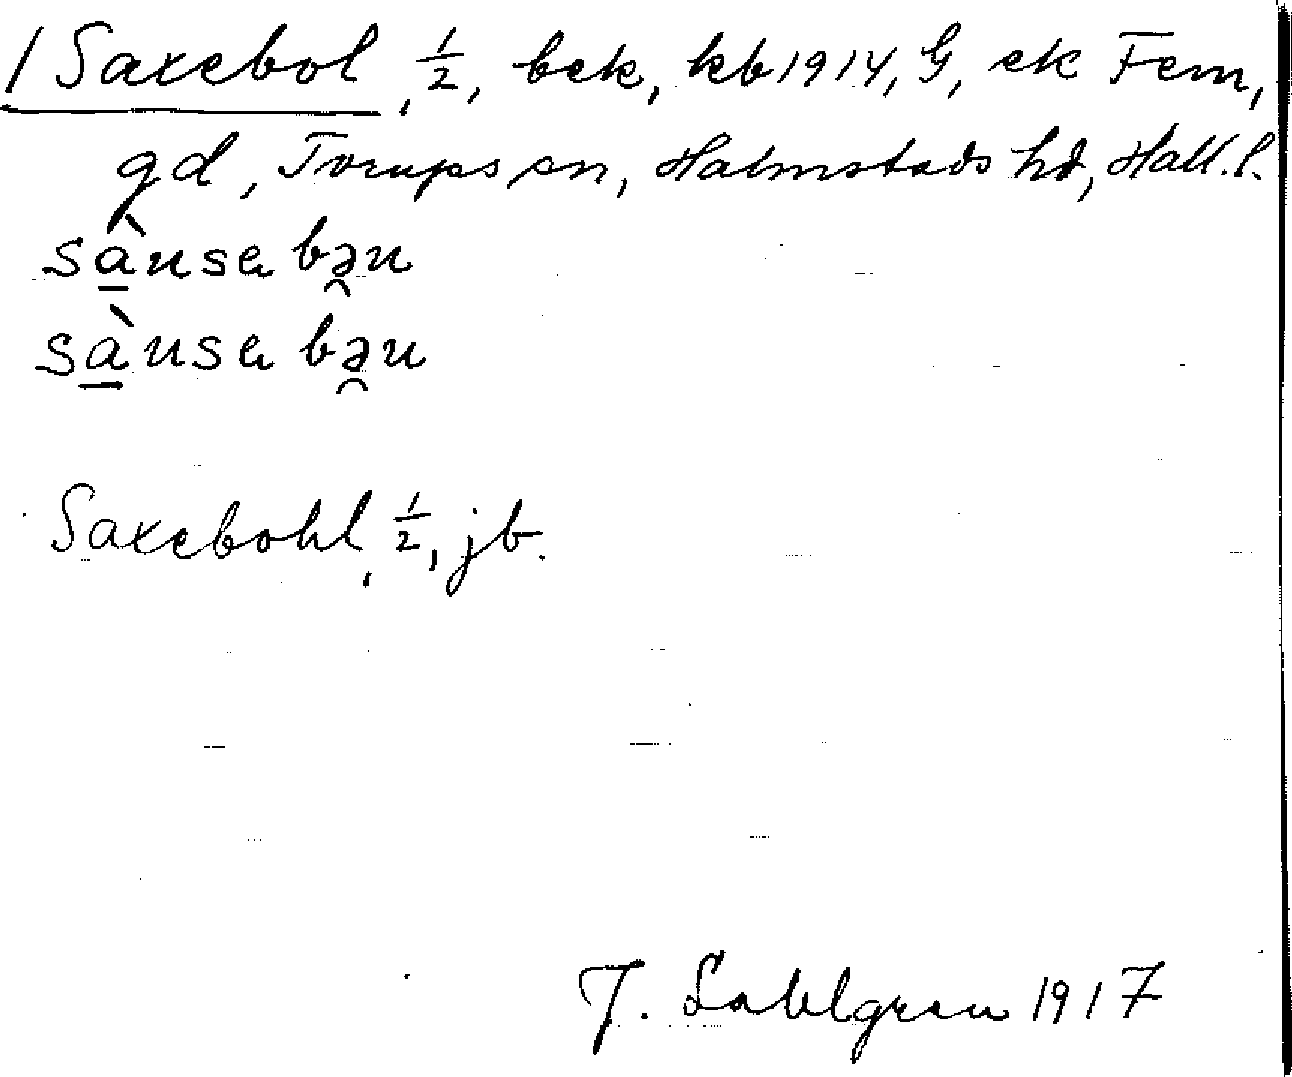 / Saxebol, 1/2, bek, kb 1914, G, ek Fem,
gd, Torups sn, Halmstads hd, Hall. l.
sàusa bəu
sàusa bəu
Saxebohl, 1/2, jb.
J. Sahlgren 1917